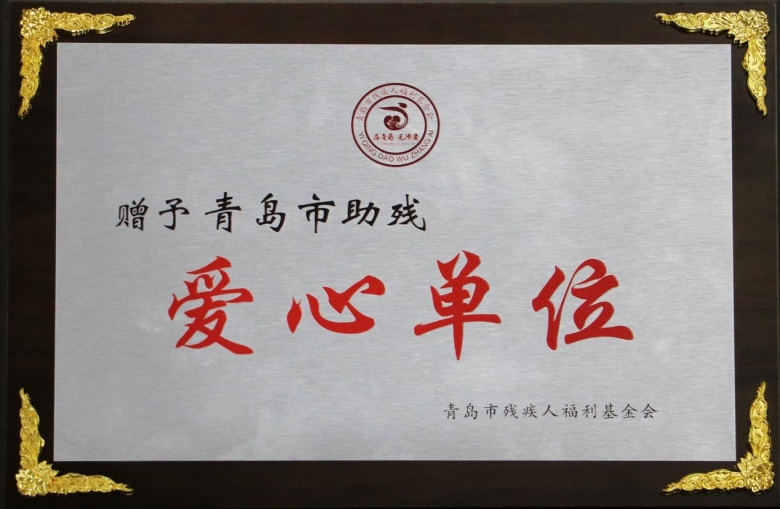 青岛市残疾人福利基金会
益青岛 无障爱
YI QING DAO WU ZHANG AI
赠予青岛市助残
爱心单位
青岛市残疾人福利基金会